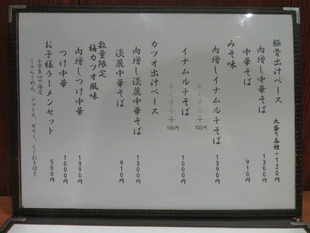 豚骨出汁ベース 大盛り各種+120円
肉増し中華そば 1300円
中華そば 910円
みそ味
肉増しイナムルチそば 1390円
イナムルチそば 1000円
カツオ出汁ベース
肉増し淡麗中華そば 1300円
淡麗中華そば 910円
数量限定
梅カツオ風味
肉増しつけ中華 1390円
つけ中華 1000円
お子様ラーメンセット 500円
小学生以下限定
ミニらーめん、ジュース、ゼリー、くじ引き付き